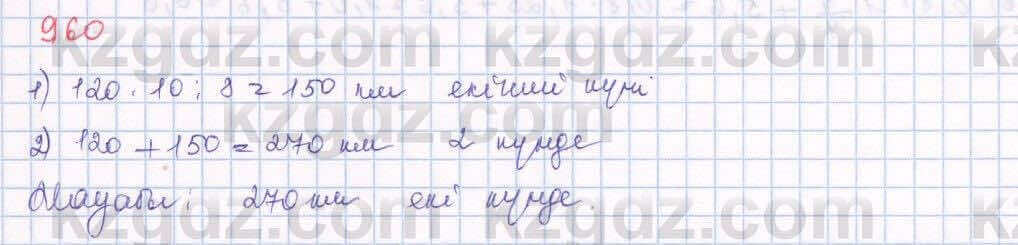 960
1) 120 · 10 : 8 = 150 км екінші күні
2) 120 + 150 = 270 км 2 күнде
Жауабы: 270 км екі күнде.
kzgdz.com
kzgdz.com
kzgdz.com